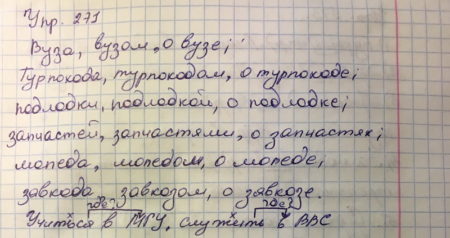 Упр. 271
Вуза, вузом, о вузе;
турпохода, турпоходом, о турпоходе;
подлодки, подлодкой, о подлодке;
запчастей, запчастями, о запчастях;
мопеда, мопедом, о мопеде;
завхоза завхозом, о завхозе.
где? где?
Учиться в МГУ, служить в ВВС